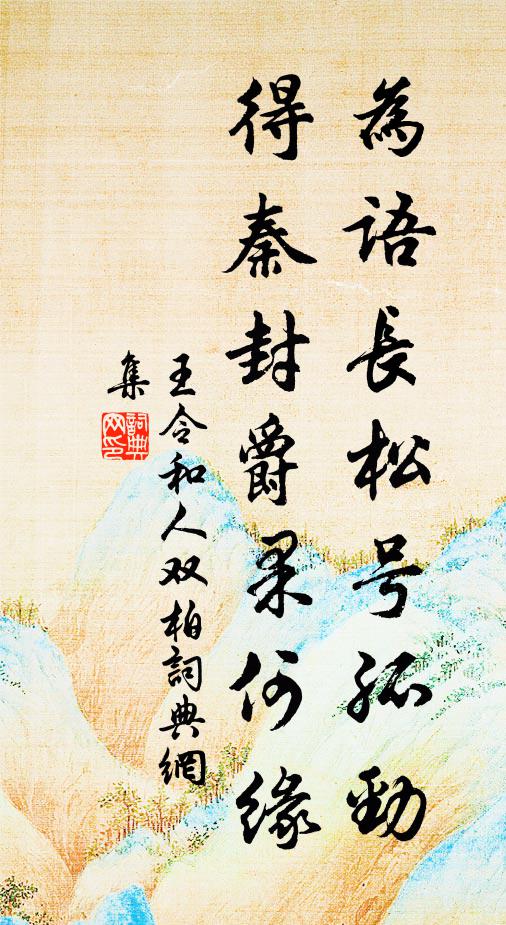 為語長松号孤勁
得秦封爵果何緣
王令和人双柏詞典網
集
詞典
网印